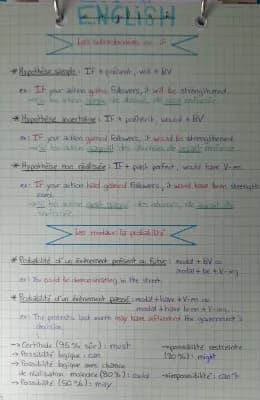 ENGLISH
Les subordonnées en IF
* Hypothèse simple : IF + présent, will + BV
ex : IF your action gains followers, it will be strengthened.
→ Si ton action
* Hypothèse incertaine : IF + prétérit, would + BV
ex : IF your action gained followers, it would be strengthened
→ Si ton action
* Hypothèse non réalisée : IF + past perfect, would have V-en
ex : IF your action had gained followers, it would have been strengthened
→ Si ton action avait
Les modaux : la probabilité
* Probabilité d'un évènement présent ou futur : modal + BV ou
modal + be + V-ing
ex : You could be demonstrating in the street.
* Probabilité d'un évènement passé : modal + have + V-en ou
modal + have been + V-ing
ex : The protests last month may have influenced the government's
decision.
→ Certitude (95% sûr) : must
→ Possibilité logique : can
→ Possibilité logique avec chance
de réalisation moindre (80%) : could
→ Possibilité (50%) : may
→ possibilité restreinte
(30%) : might
→ impossibilité : can't